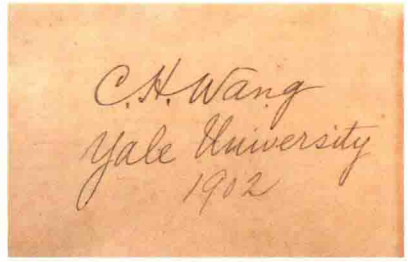 C. H. Wang
Yale University
1902